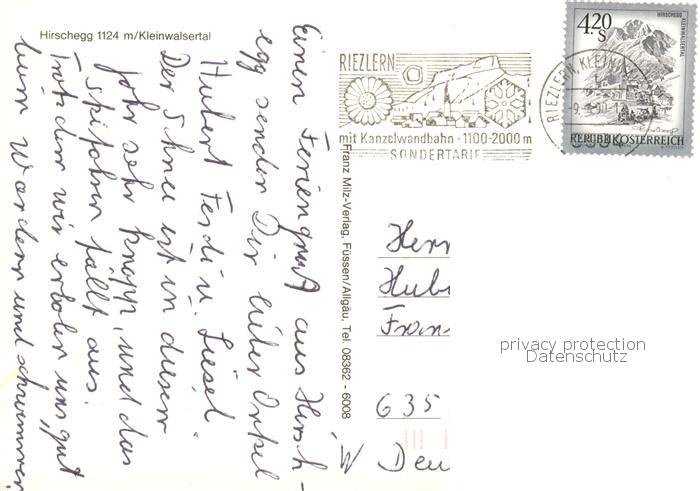 Hirschegg 1124 m/Kleinwalsertal
Einen Feriengruß aus Hirsch-
egg senden Dir lieber Onkel
Hubert Ferdi u. Liesel
Der Schnee ist in diesem
Jahr sehr knapp, und das
Skifahren fällt aus.
Trotzdem wir erholen uns gut
beim Wandern und schwimmen
Franz Milz-Verlag, Füssen/Allgäu, Tel. 08362 - 6008
RIEZLERN
mit Kanzelwandbahn · 1100-2000 m
SONDERTARIF
RIEZLERN, KLEIN
4.20 S
HIRSCHEGG
KLEINWALSERTAL
REPUBLIK ÖSTERREICH
Herr
Hube
Fran
635
W Deu
privacy protection
Datenschutz